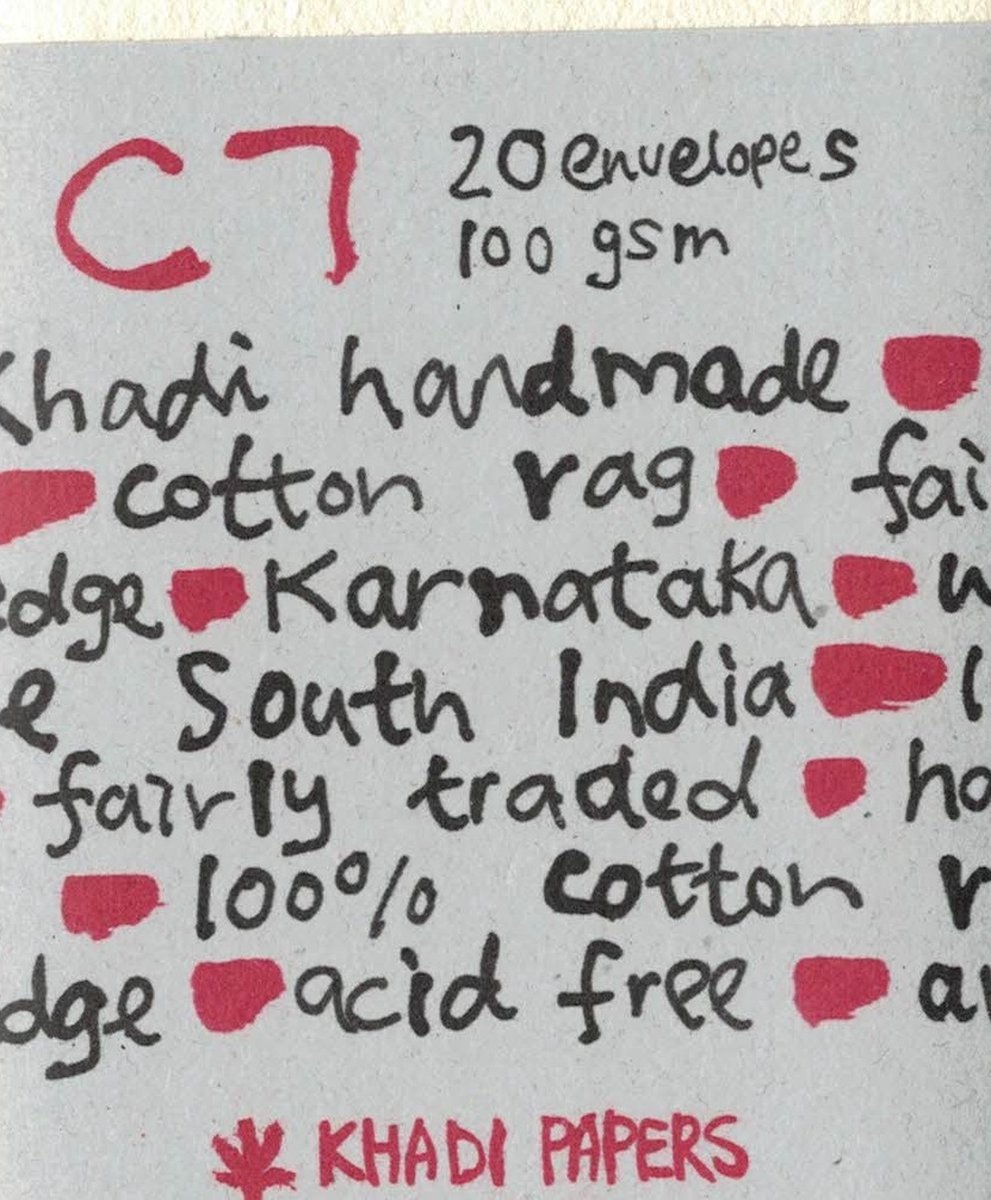 C7
20 envelopes
100 gsm
Khadi handmade
cotton rag fai
edge Karnataka
South India
fairly traded
100% cotton
dge acid free
KHADI PAPERS